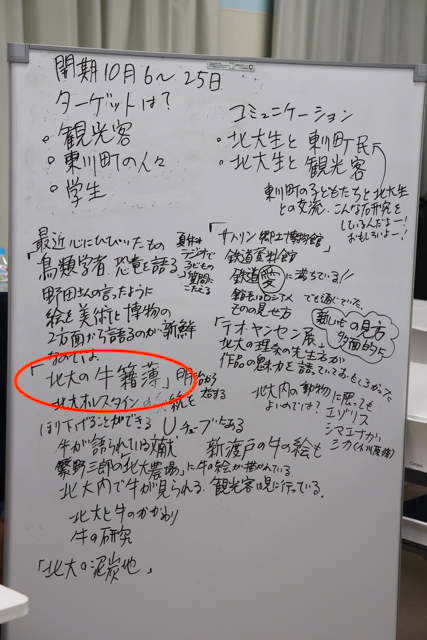 開期10月6〜25日
ターゲットは？
・観光客
・東川町の人々
・学生
コミュニケーション
・北大生と東川町民
・北大生と観光客
東川町の子どもたちと北大生
との交流。こんな研究を
しているんだよー！
おもしろいよー！
最近心にひびいたもの
「鳥類学者 恐竜を語る」
夏休み
ラジオで
子どもの
質問に
こたえる
野田さんの言ったように
絵を美術と博物の
2方面から語るのが新鮮
なのでは
「北大の牛籍簿」明治から
北大ホルスタインの
ほり下げることができる
「サハリン郷土博物館
鉄道資料館
鉄道愛に満ちている!!
ものの見せ方
「テオ・ヤンセン展」
新しいもの見方
多面的に
北大の理系の先生方が
作品の魅力を語っていておもしろかった
北大内の動物に限っても
よいのでは？
エゾリス
シマエナガ
シカ
牛が語られている文献
新渡戸の牛の絵も
「北大農場」に牛の絵が描かれている
北大内で牛が見られる。観光客は見に行っている。
北大と牛のかかわり
牛の研究
「北大の泥炭地」